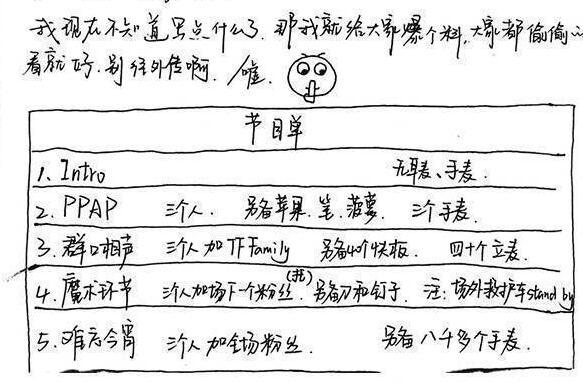 我现在不知道写点什么了,那我就给大家爆个料,大家都偷偷
看就好,别往外传啊,嘘
节目单
1. Intro 无耳麦、手麦.
2. PPAP 三个人. 另备苹果、笔、菠萝. 三个手麦.
3. 群口相声 三个人加TFFamily 另备40个快板. 四十个立麦.
4. 魔术环节 三个人加场下一个粉丝(托). 另备刀和钉子. 注:场外救护车stand by
5. 难忘今宵 三个人加全场粉丝. 另备八千多个手麦.